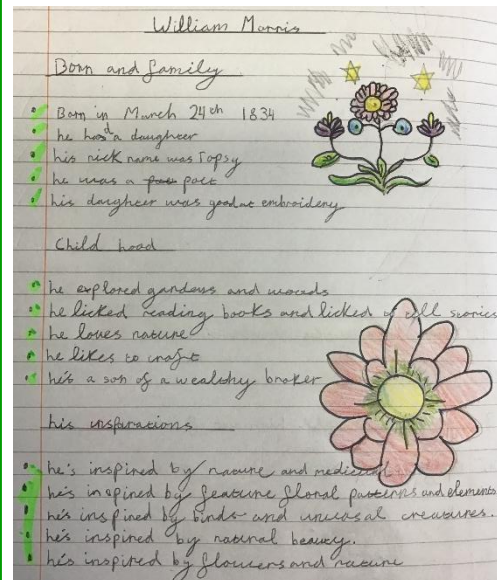 William Morris
Born and family
Born in March 24th 1834
he had a daugheer
his nick name was Topsy
he was a poet
his daugheer was good at embroidery
Child hood
he explored gardens and woods
he licked reading books and licked tell stories
he loves nature
he likes to craft
he's a son of a wealthy broker
his insparations
he's inspired by nature and medieval
he's inspired by feature floral patterns and elements
he's inspired by birds and unusal creatures.
he's inspired by natural beauty.
he's inspired by flowers and nature